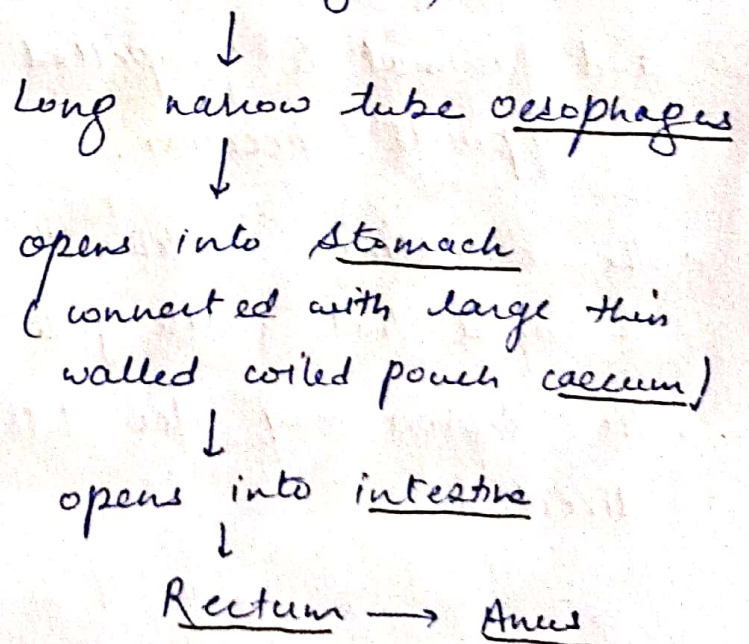 ↓
Long narrow tube oesophagus
↓
opens into stomach
(connected with large thin
walled coiled pouch caecum)
↓
opens into intestine
↓
Rectum → Anus